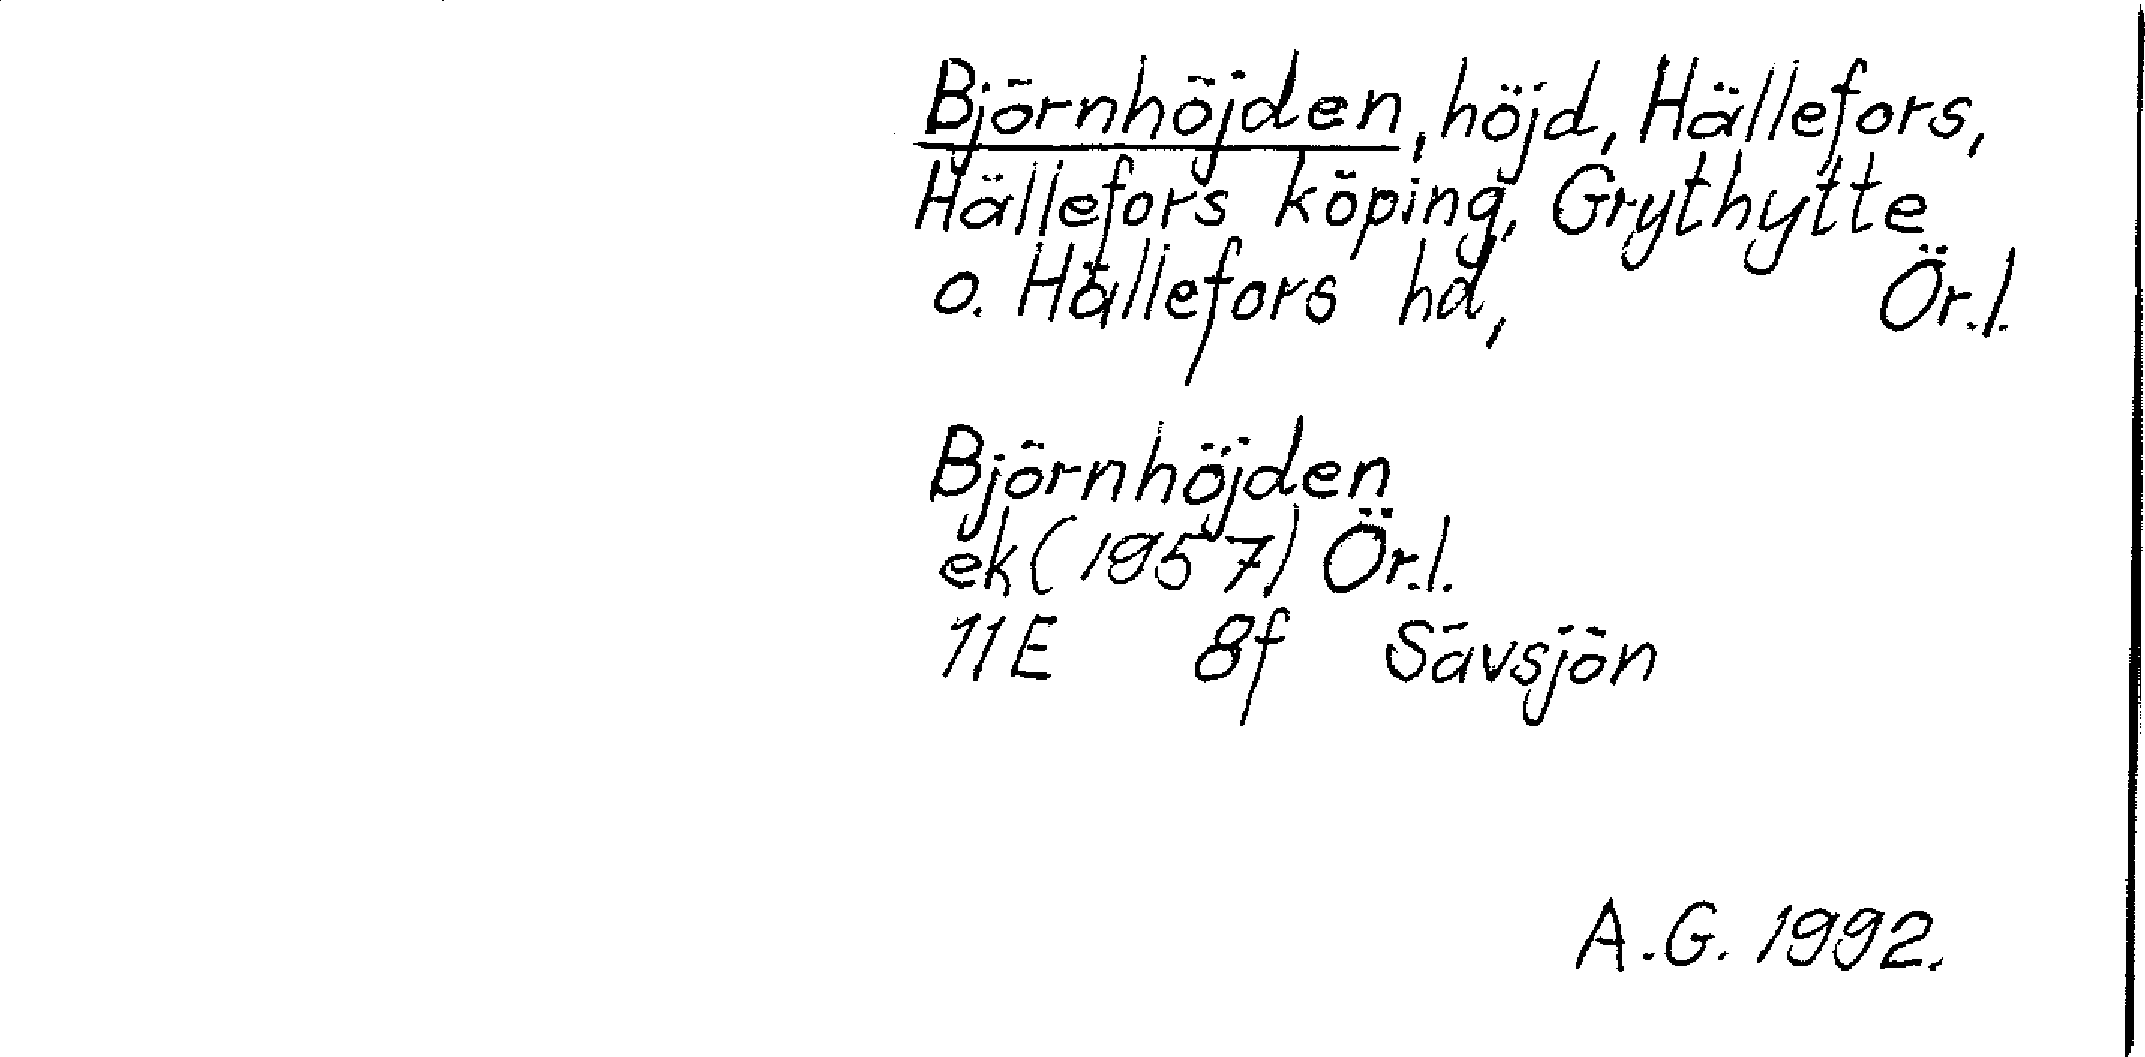 Björnhöjden, höjd, Hällefors,
Hällefors köping, Grythytte
o. Hällefors hd, Ör.l.
Björnhöjden
ek (1957) Ör.l.
11E 8f Sävsjön
A.G. 1992.